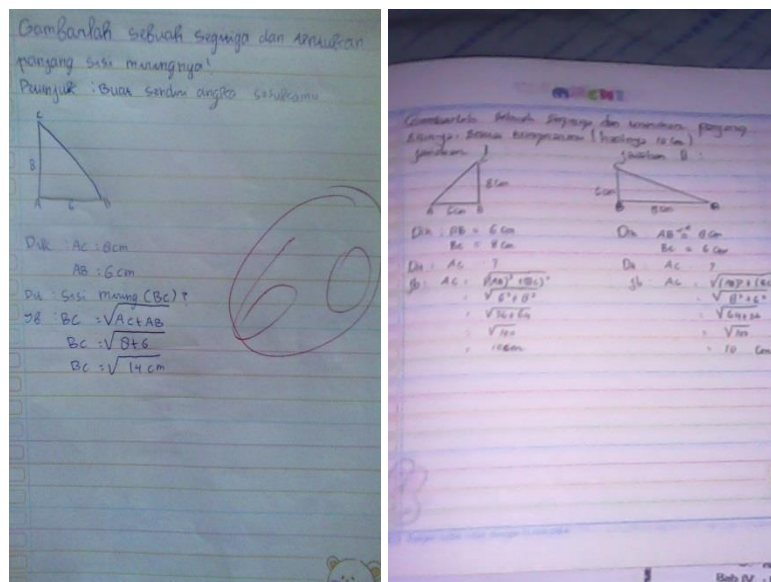 Gambarlah sebuah segitiga dan temukan
panjang sisi miringnya!
Petunjuk : Buat sendiri angka sesukamu
C
8
A 6 B
60
Dik : AC : 8cm
AB = 6cm
Dit : Sisi miring (BC) ?
Jb : BC = √AC+AB
BC = √8+6
BC = √14 cm
Gambarlah sebuah segitiga dan temukan panjang
(hasilnya 10 cm)
8cm
A 6cm B
6cm
B 8cm
Dik : AB = 6 cm
BC = 8 cm
Dit : AC ?
Jb : AC = √(AB)² + (BC)²
= √6² + 8²
= √36 + 64
= √100
10cm
Dik AB = 8 cm
BC = 6 cm
Dit : AC ?
Jb : AC = √(AB)² + (BC
= √8² + 6²
= √64 + 36
= √100
= 10 cm
Bab IV